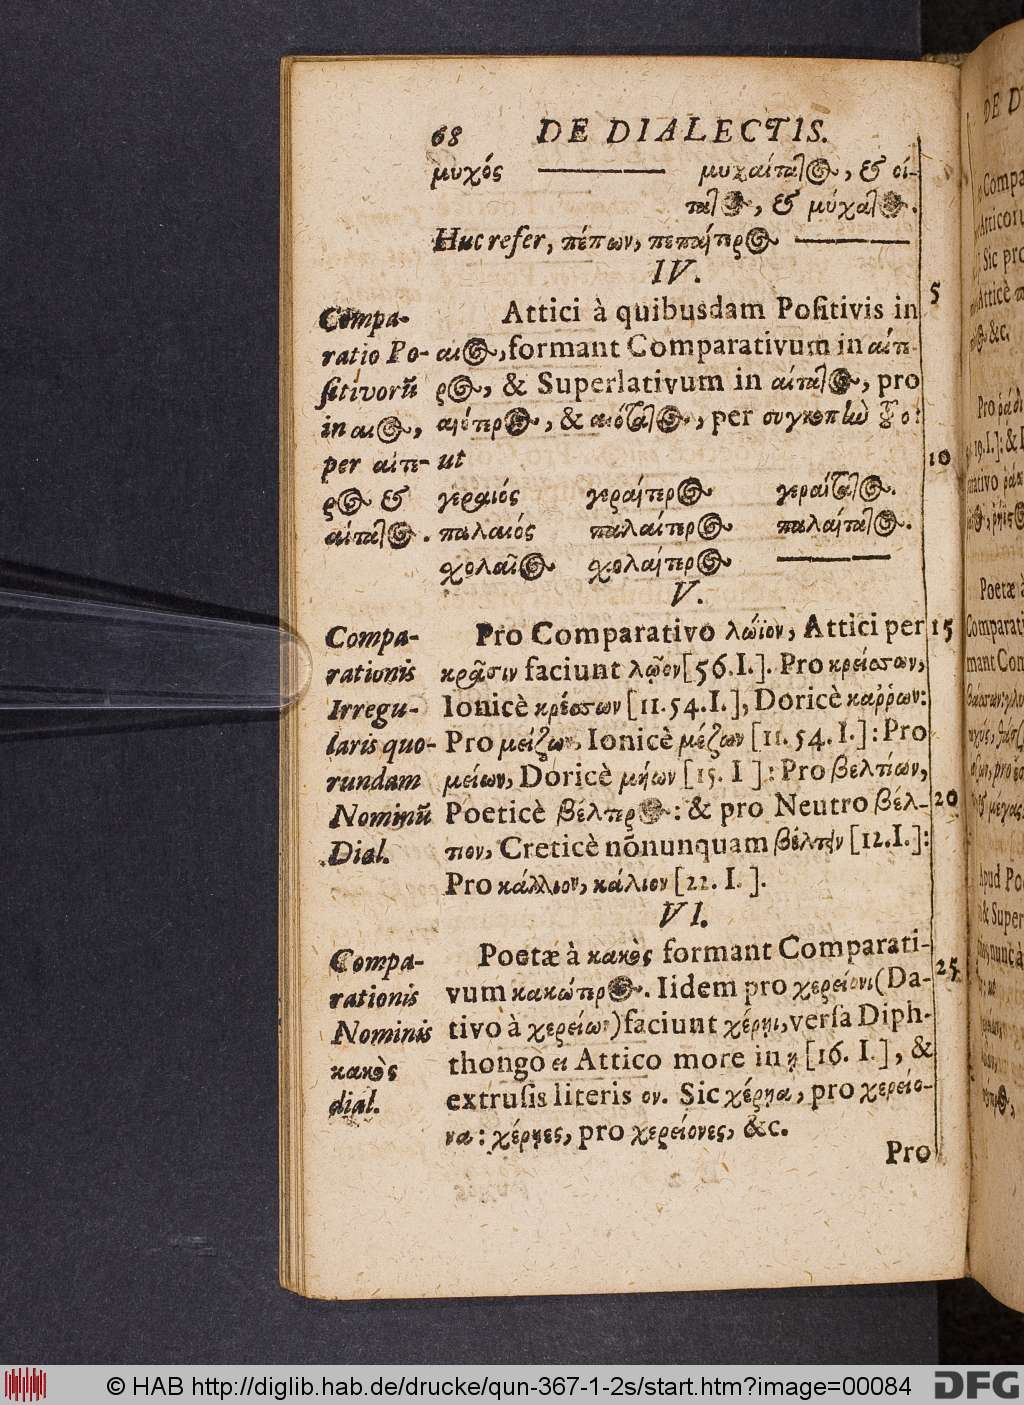 68 DE DIALECTIS.
μυχός ——— μυχαίτατος, & οί-
τατος, & μύχατος.
Huc refer, πέπων, πεπαίτερος ———
IV.
Compa-
ratio Po-
sitivorũ
in αιος,
per αίτε-
ρος &
αίτατος.
Attici à quibusdam Positivis in
αιος, formant Comparativum in αίτε-
ρος, & Superlativum in αίτατος, pro
αιότερος, & αιότατος, per συγκοπὴν τοῦ ο:
ut
γεραιός γεραίτερος γεραίτατος.
παλαιός παλαίτερος παλαίτατος.
σχολαῖος σχολαίτερος ———
5
10
V.
Compa-
rationis
Irregu-
laris quo-
rundam
Nominũ
Dial.
Pro Comparativo λώϊον, Attici per
κρᾶσιν faciunt λῶον [56. I.]. Pro κρείσσων,
Ionicè κρέσσων [11. 54. I.], Doricè καῤῥων:
Pro μείζων, Ionicè μέζων [11. 54. I.]: Pro
μείων, Doricè μήων [15. I]: Pro βελτίων,
Poeticè βέλτερος: & pro Neutro βέλ-
τιον, Creticè nõnunquam βέλτιν [12. I.]:
Pro κάλλιον, κάλιον [22. I.].
15
20
VI.
Compa-
rationis
Nominis
κακὸς
dial.
Poetæ à κακὸς formant Comparati-
vum κακώτερος. Iidem pro χερείονι (Da-
tivo à χερείων) faciunt χέρηι, versa Diph-
thongo ει Attico more in η [16. I.], &
extrusis literis ον. Sic χέρηα, pro χερείο-
να: χέρηες, pro χερείονες, &c.
25
Pro
DE D
© HAB http://diglib.hab.de/drucke/qun-367-1-2s/start.htm?image=00084
DFG